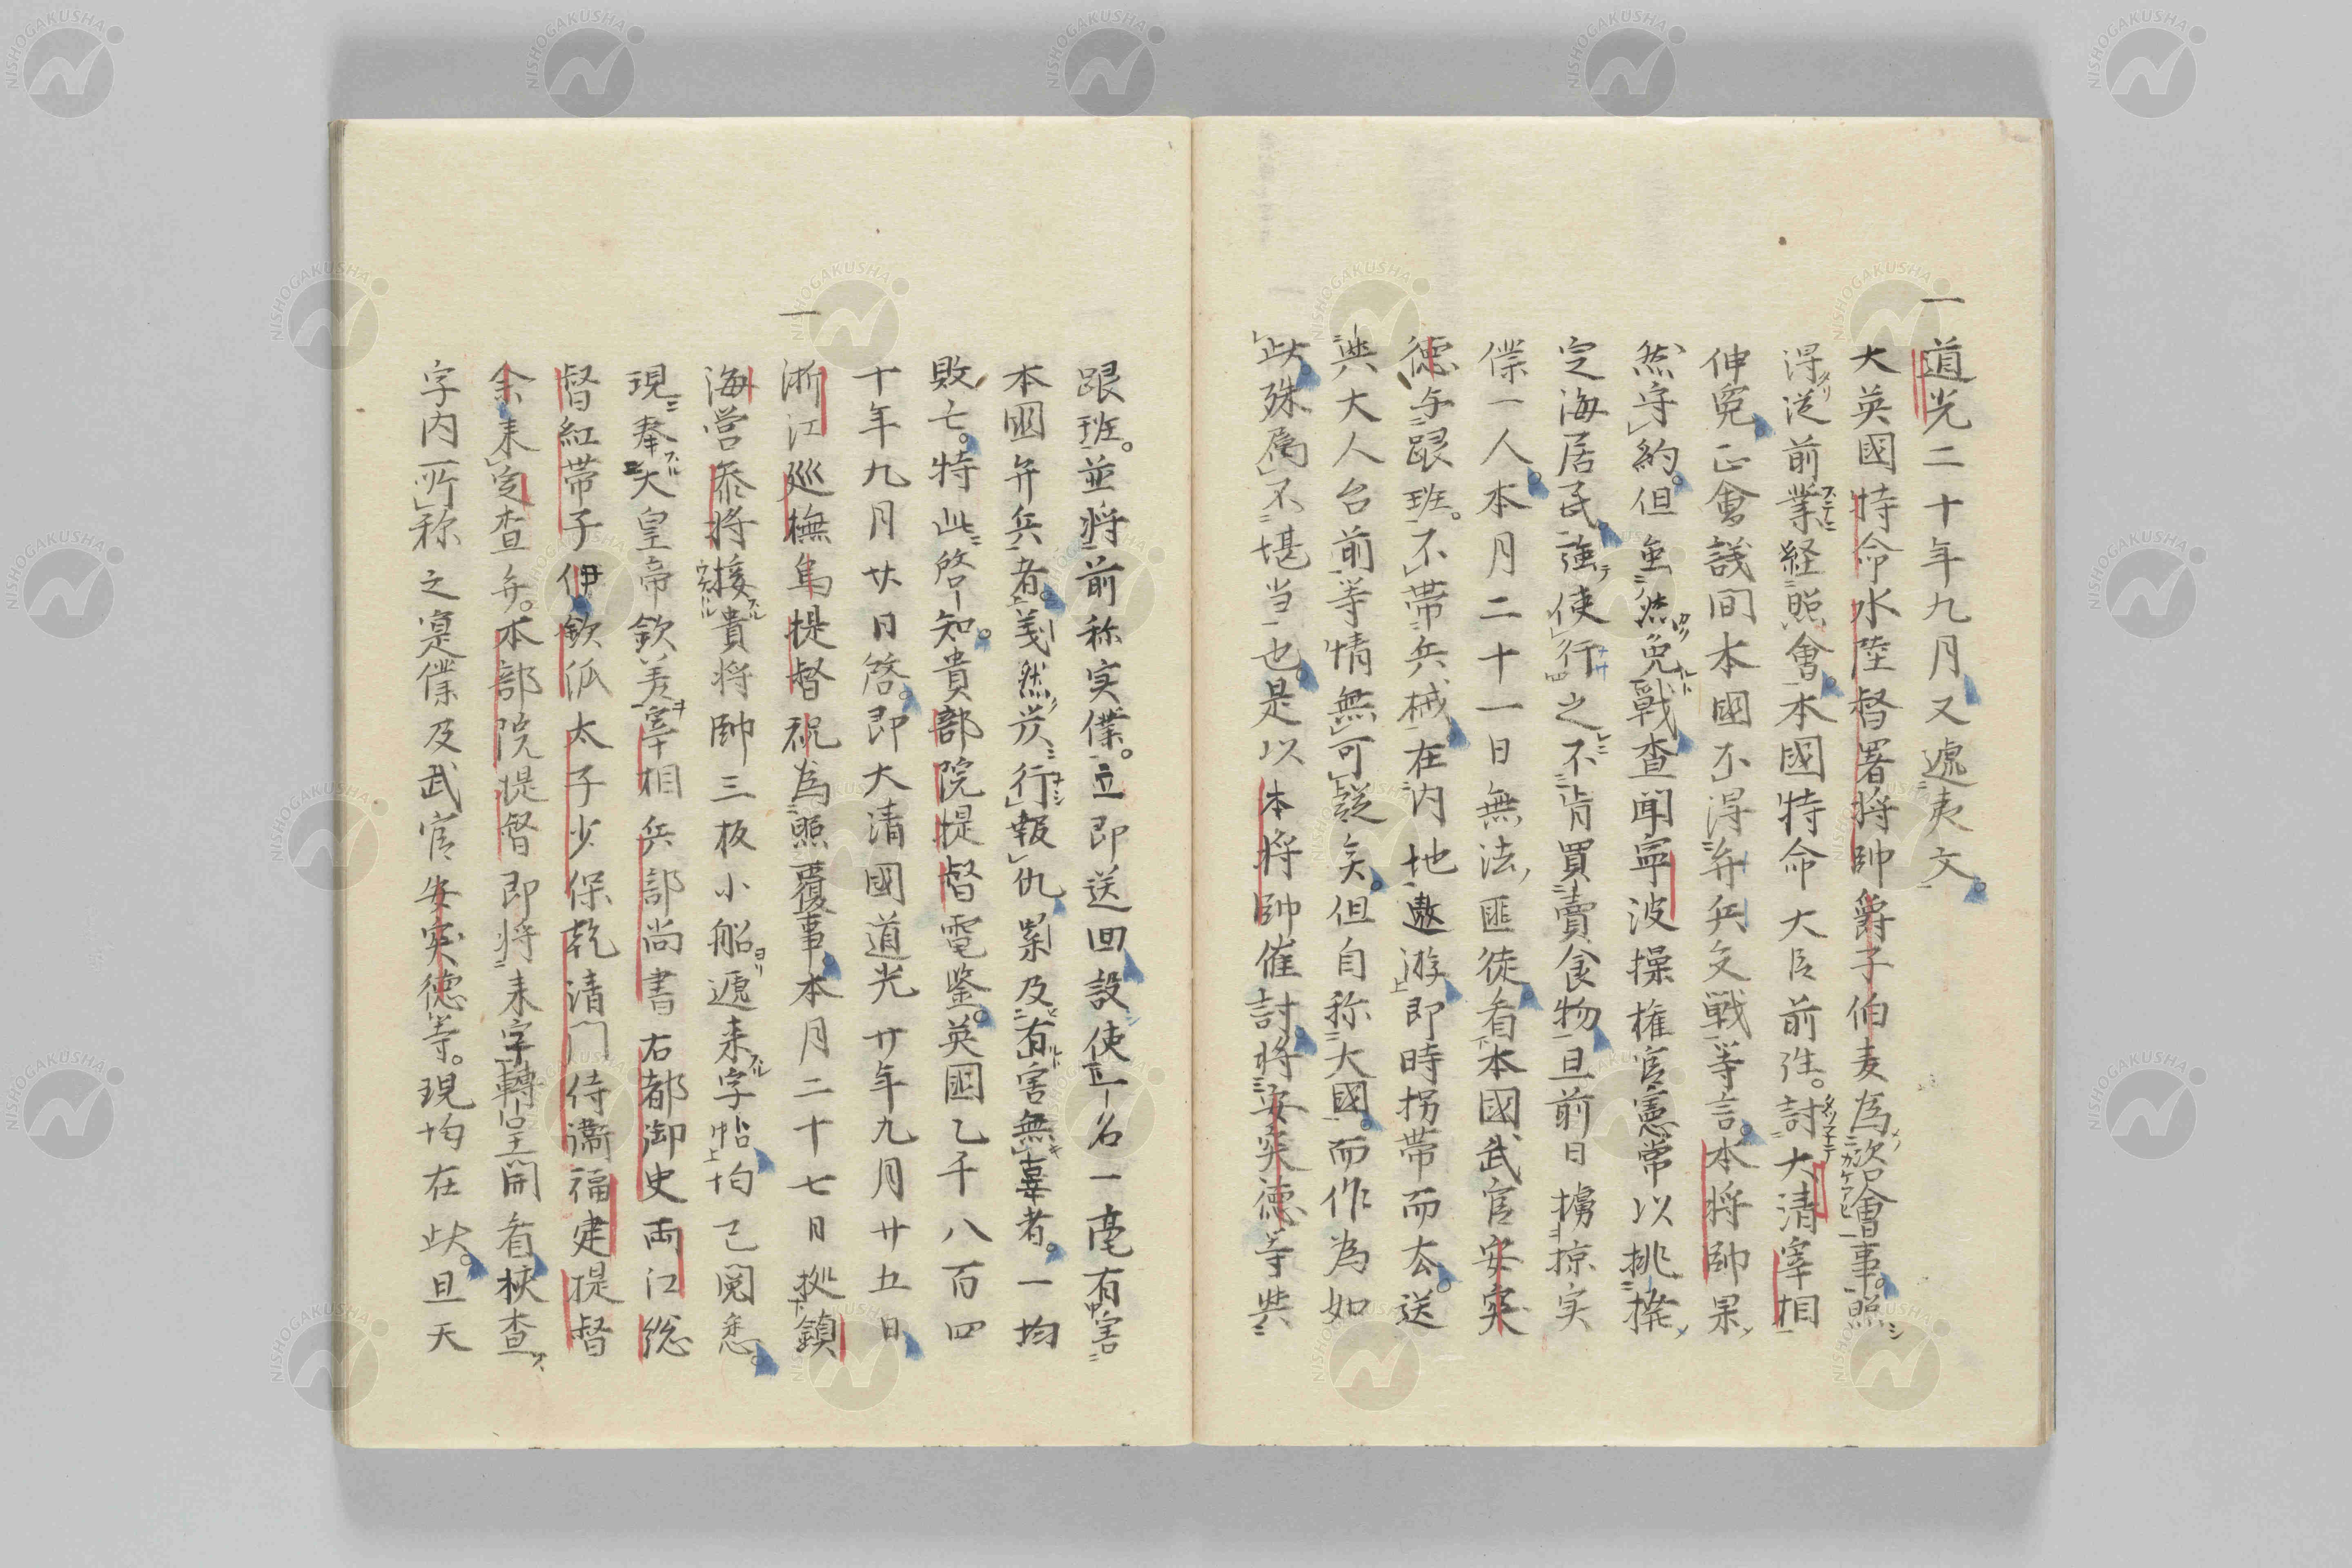 一道光二十年九月又逓夷文
大英國特命水陸督署将帥爵子伯麦為諮會事照
得従前業経照會本國特命大臣前進討大清宰相
伸寃正會議间本國不得弁兵交戦等言本将帥果
然守約但虽然免戰査闻寧波操権官憲常以挑
定海居民強使行之不肯買賣食物且前日擄掠实
僕一人本月二十一日無法匪徒看本國武官安突
徳与跟班不帯兵械在内地遨游即時拐帯而去送
與大人台前等情無可疑矣但自称大國而作為如
此殊属不堪当也是以本将帥催討将安突徳等與
跟班並将前称实僕立即送回設使立名一毫有害
本國弁兵者義然发行報仇業及有害無辜者一均
敗亡特此啓知貴部院提督電鑒英國乙千八百四
十年九月廿日啓即大清國道光廿年九月廿五日
一浙江廵撫烏提督祝為照覆事本月二十七日拠鎮
海営泰将接貴将帥三板小船逓来字帖均已閲悉
現奉大皇帝欽差宰相兵部尚書右都御史両江総
督紅帯子伊欽派太子少保乾清門侍衞福建提督
余来定査弁本部院提督即将来字轉呈開看核査
字内所称之寔僕及武官安突徳等現均在此且天